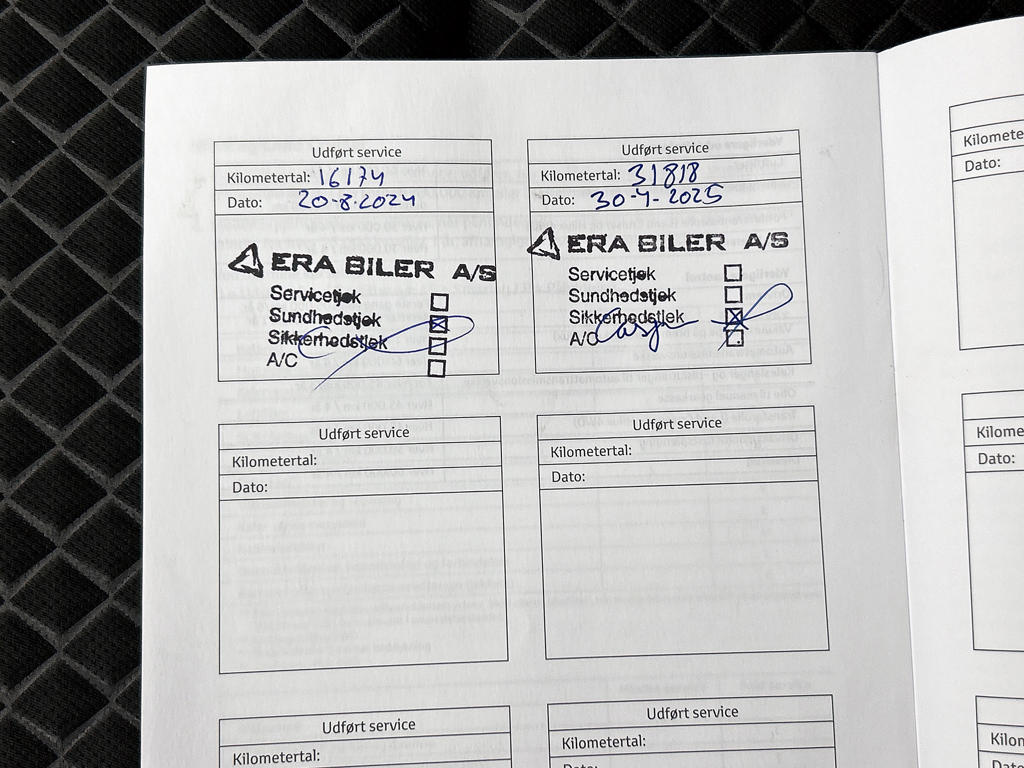 Udført service
Kilometertal: 16174
Dato: 20-8-2024
ERA BILER A/S
Servicetjek
Sundhedstjek
Sikkerhedstjek
A/C
Udført service
Kilometertal: 31818
Dato: 30-4-2025
ERA BILER A/S
Servicetjek
Sundhedstjek
Sikkerhedstjek
A/C
Udført service
Kilometertal:
Dato:
Udført service
Kilometertal:
Dato:
Udført service
Kilometertal:
Udført service
Kilometertal:
Kilomete
Dato:
Kilome
Dato:
Kilom